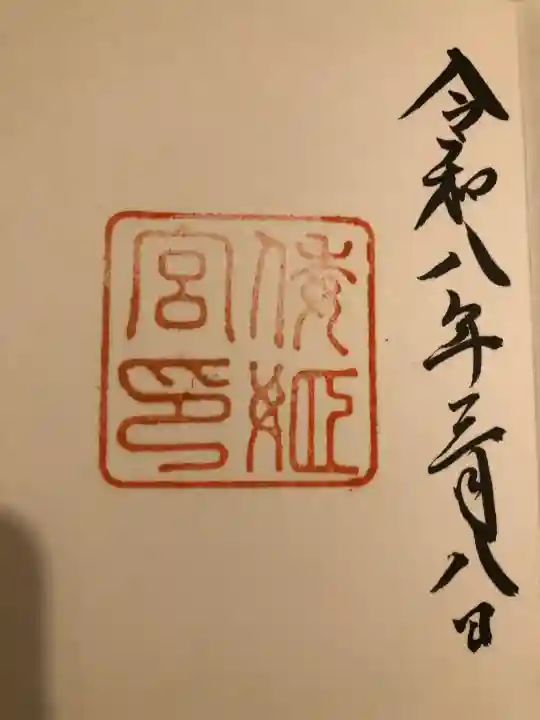 令和八年三月八日
倭姫
宮印